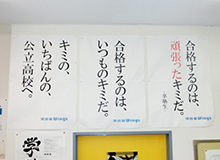 合格するのは、
頑張ったキミだ。
合格するのは、
いつものキミだ。
キミの、
いちばんの、
公立高校へ。
学